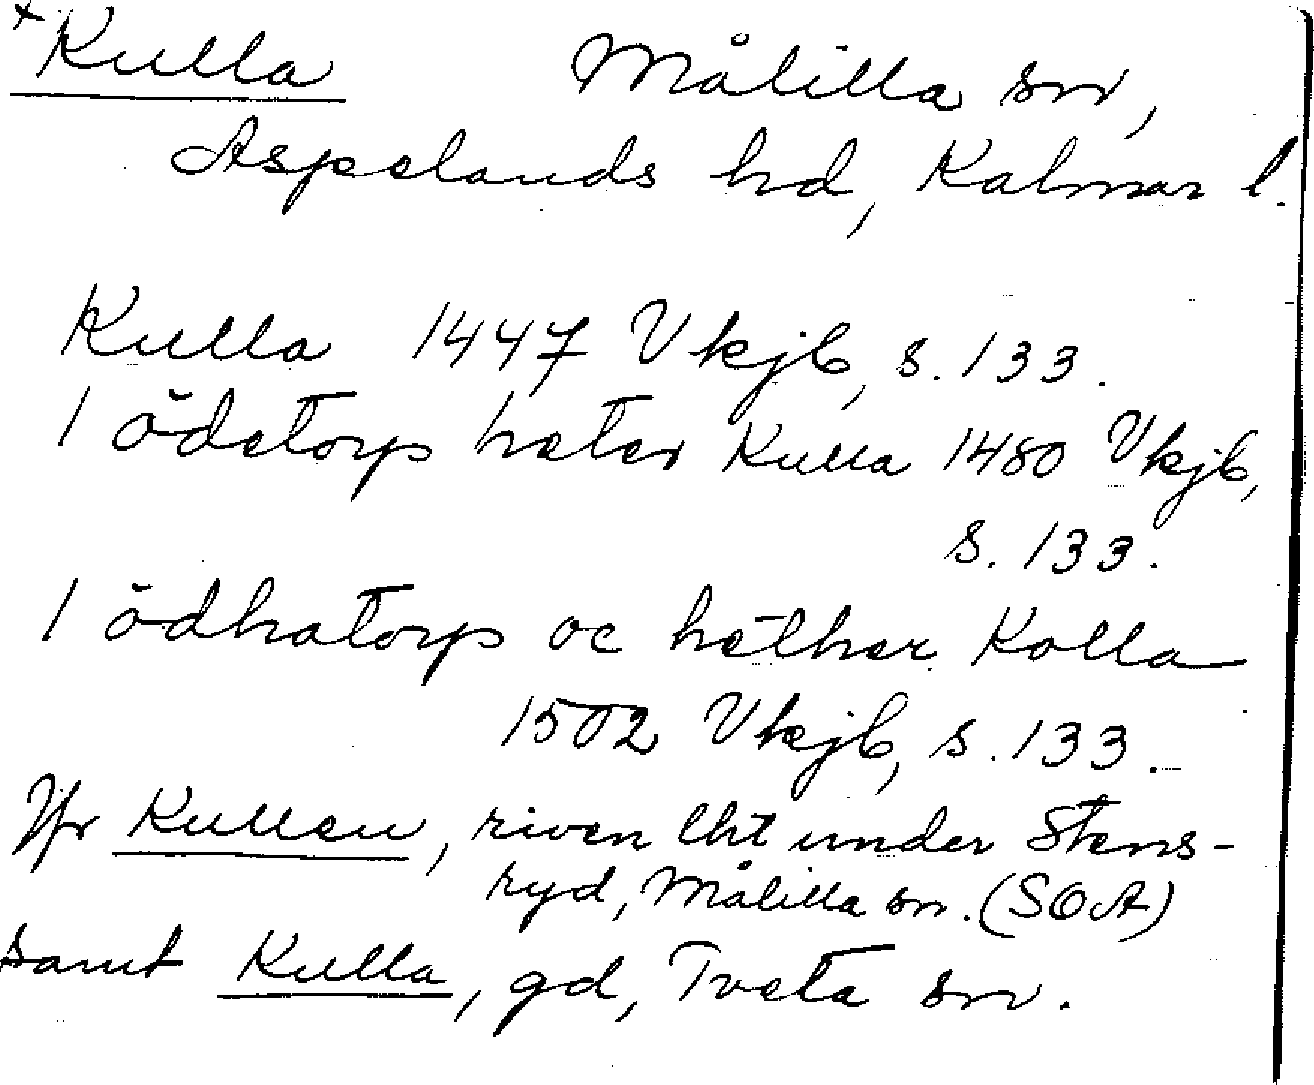 +Kulla Målilla sn,
Aspelands hd, Kalmar l.
Kulla 1447 Vkjb, s. 133.
1 ödetorp heter Kulla 1480 Vkjb,
s. 133.
1 ödhatorp oc hether Kolla
1502 Vkjb, s. 133.
Jfr Kullen, riven lht under Stens-
ryd, Målilla sn. (SOA)
samt Kulla, gd, Tveta sn.